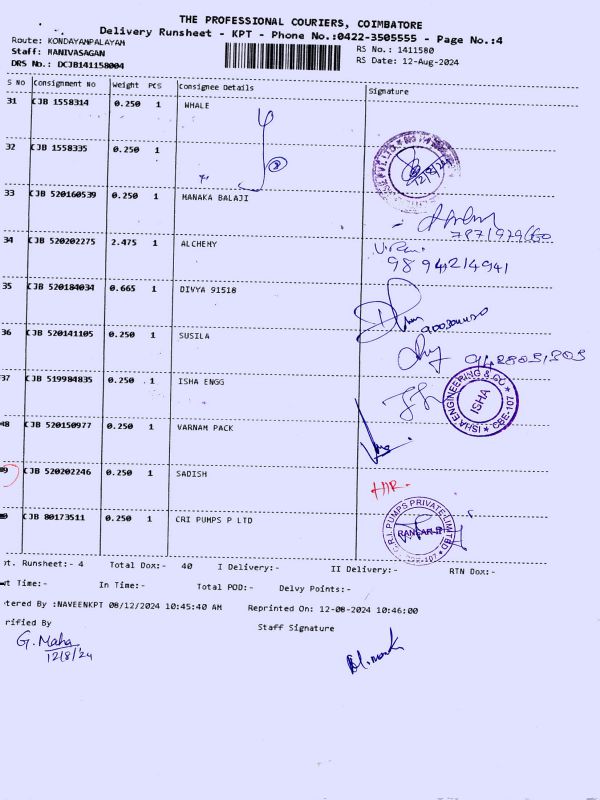 THE PROFESSIONAL COURIERS, COIMBATORE
Delivery Runsheet - KPT - Phone No.:0422-3505555 - Page No.:4
Route: KONDAYAMPALAYAM
RS No.: 1411580
Staff: MANIVASAGAN
RS Date: 12-Aug-2024
DRS No.: DCJB141158004
S No Consignment No Weight PCS Consignee Details Signature
31 CJB 1558314 0.250 1 WHALE
32 CJB 1558335 0.250 1
33 CJB 520160539 0.250 1 MANAKA BALAJI
34 CJB 520202275 2.475 1 ALCHEMY
9894214941
35 CJB 520184034 0.665 1 DIVYA 91518
36 CJB 520141105 0.250 1 SUSILA
37 CJB 519984835 0.250 1 ISHA ENGG
ISHA ENGINEERING & CO CBE-107
ISHA
38 CJB 520150977 0.250 1 VARNAM PACK
39 CJB 520202246 0.250 1 SADISH
CJB 80173511 0.250 1 CRI PUMPS P LTD
C.R.I. PUMPS PRIVATE LIMITED
pt. Runsheet:- 4 Total Dox:- 40 I Delivery:- II Delivery:- RTN Dox:-
ut Time:- In Time:- Total POD:- Delvy Points:-
tered By :NAVEENKPT 08/12/2024 10:45:40 AM Reprinted On: 12-08-2024 10:46:00
rified By Staff Signature
G. Maha
12/8/24